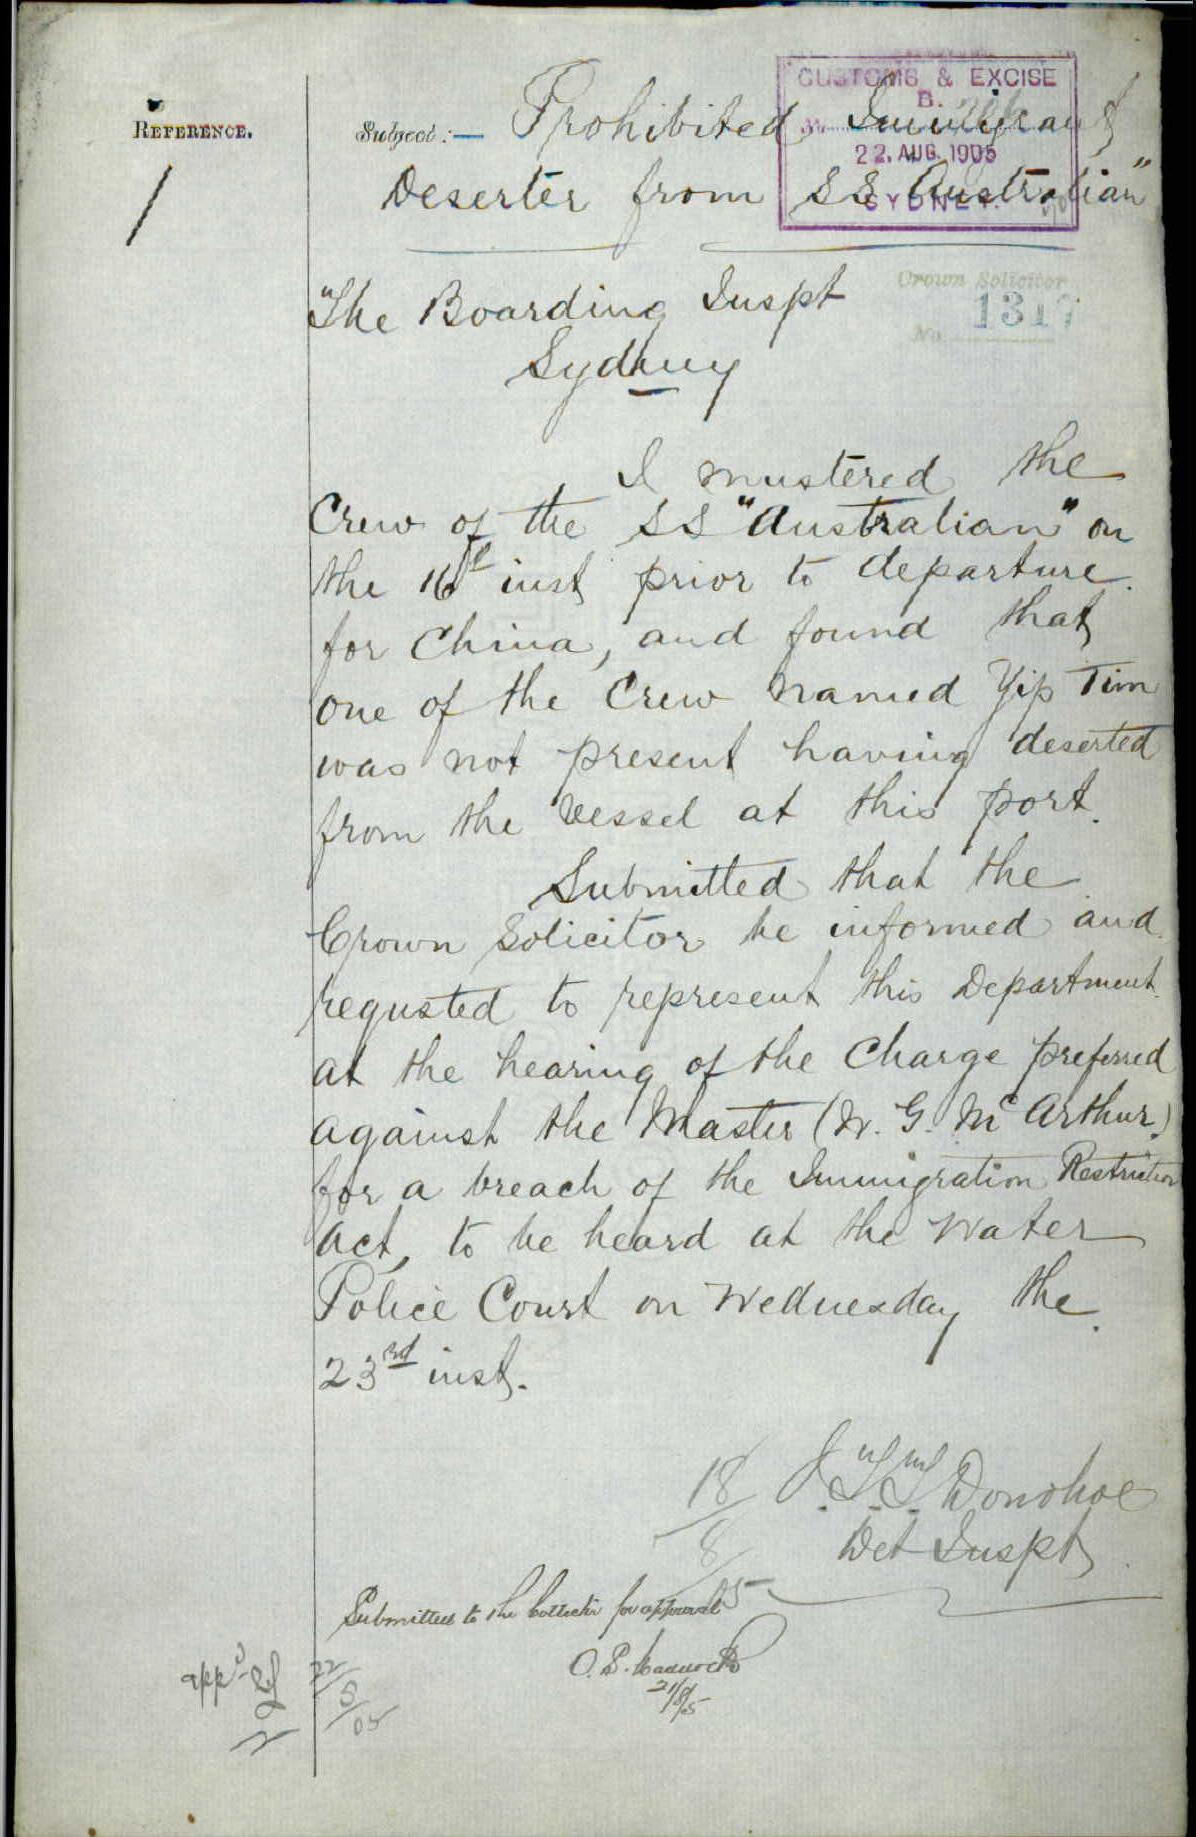 REFERENCE.
1
Subject:— Prohibited Immigrant
Deserter from SS Australian"
CUSTOMS & EXCISE
B.
22. AUG. 1905
SYDNEY.
Crown Solicitor
No. 1317
The Boarding Inspt
Sydney
I mustered the
Crew of the SS "Australian" on
the 16th inst prior to departure
for China, and found that
one of the Crew named Yip Tim
was not present having deserted
from the vessel at this port.
Submitted that the
Crown Solicitor be informed and
requsted to represent this Department
at the hearing of the Charge preferred
against the Master (W. G. Mc Arthur.)
for a breach of the Immigration Restriction
Act, to be heard at the Water
Police Court on Wednesday the
23rd inst.
18/8/5 Donohoe
Det Inspt
Submitted to the Collector for approval
21/8/5
appd